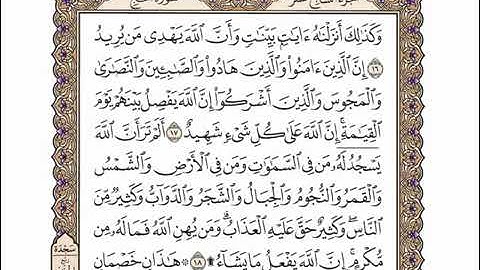 وَكَذَٰلِكَ أَنزَلْنَٰهُ ءَايَٰتٍۭ بَيِّنَٰتٍ وَأَنَّ ٱللَّهَ يَهْدِى مَن يُرِيدُ
١٦ إِنَّ ٱلَّذِينَ ءَامَنُوا۟ وَٱلَّذِينَ هَادُوا۟ وَٱلصَّٰبِـِٔينَ وَٱلنَّصَٰرَىٰ
وَٱلْمَجُوسَ وَٱلَّذِينَ أَشْرَكُوٓا۟ إِنَّ ٱللَّهَ يَفْصِلُ بَيْنَهُمْ يَوْمَ
ٱلْقِيَٰمَةِ ۚ إِنَّ ٱللَّهَ عَلَىٰ كُلِّ شَىْءٍ شَهِيدٌ ١٧ أَلَمْ تَرَ أَنَّ ٱللَّهَ
يَسْجُدُ لَهُۥ مَن فِى ٱلسَّمَٰوَٰتِ وَمَن فِى ٱلْأَرْضِ وَٱلشَّمْسُ
وَٱلْقَمَرُ وَٱلنُّجُومُ وَٱلْجِبَالُ وَٱلشَّجَرُ وَٱلدَّوَآبُّ وَكَثِيرٌ مِّنَ
ٱلنَّاسِ ۖ وَكَثِيرٌ حَقَّ عَلَيْهِ ٱلْعَذَابُ ۗ وَمَن يُهِنِ ٱللَّهُ فَمَا لَهُۥ مِن
مُّكْرِمٍ ۚ إِنَّ ٱللَّهَ يَفْعَلُ مَا يَشَآءُ ۩ ١٨ ۞ هَٰذَانِ خَصْمَانِ
سَجْدَة